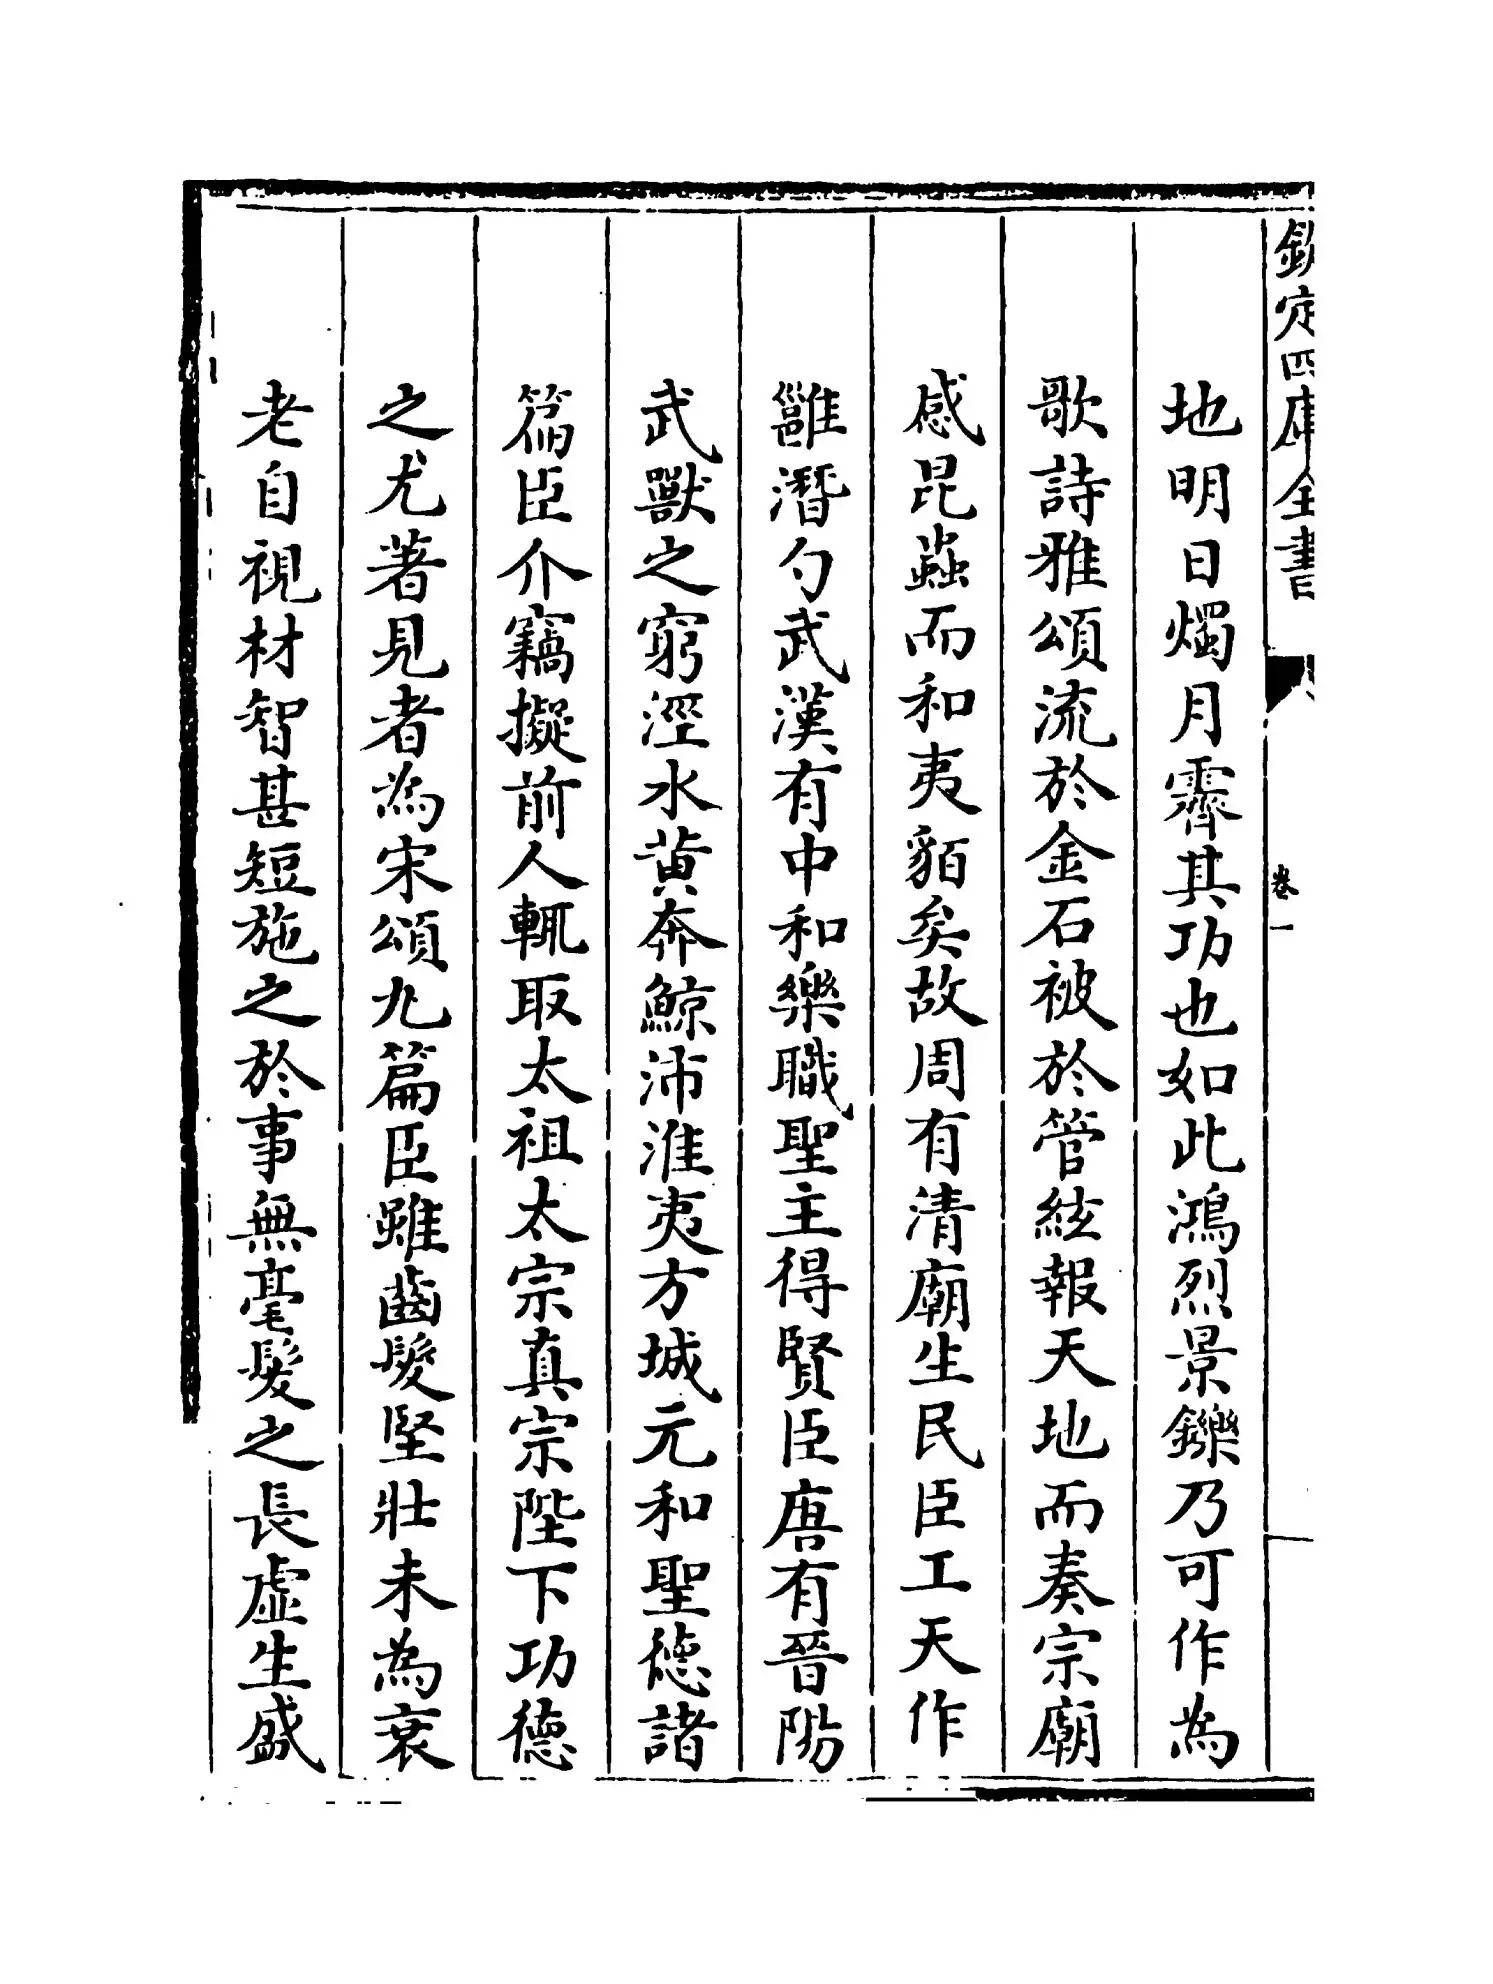 欽定四庫全書
卷一
地明日燭月霽其功也如此鴻烈景鑠乃可作為
歌詩雅頌流於金石被於管絃報天地而奏宗廟
感昆蟲而和夷貊矣故周有清廟生民臣工天作
雝潛勺武漢有中和樂職聖主得賢臣唐有晉陽
武獸之窮涇水黄奔鯨沛淮夷方城元和聖德諸
篇臣介竊擬前人輒取太祖太宗真宗陛下功德
之尤著見者為宋頌九篇臣雖齒髮堅壯未為衰
老自視材智甚短施之於事無毫髮之長虚生盛